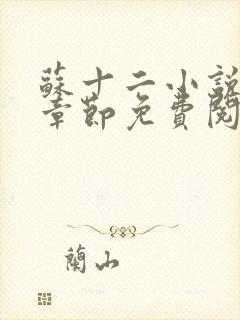 蘇十二小說
章節免費閱
蘭山